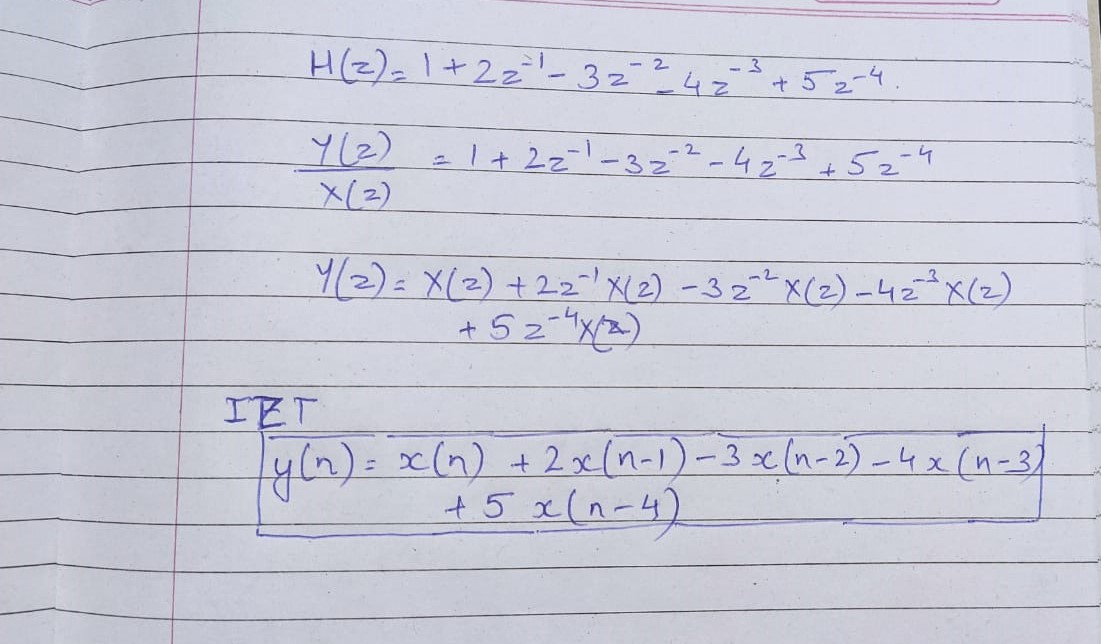 H(z) = 1 + 2z⁻¹ - 3z⁻² - 4z⁻³ + 5z⁻⁴.
Y(z)/X(z) = 1 + 2z⁻¹ - 3z⁻² - 4z⁻³ + 5z⁻⁴
Y(z) = X(z) + 2z⁻¹X(z) - 3z⁻²X(z) - 4z⁻³X(z)
+ 5z⁻⁴X(z)
IZT
y(n) = x(n) + 2x(n-1) - 3x(n-2) - 4x(n-3)
+ 5x(n-4)